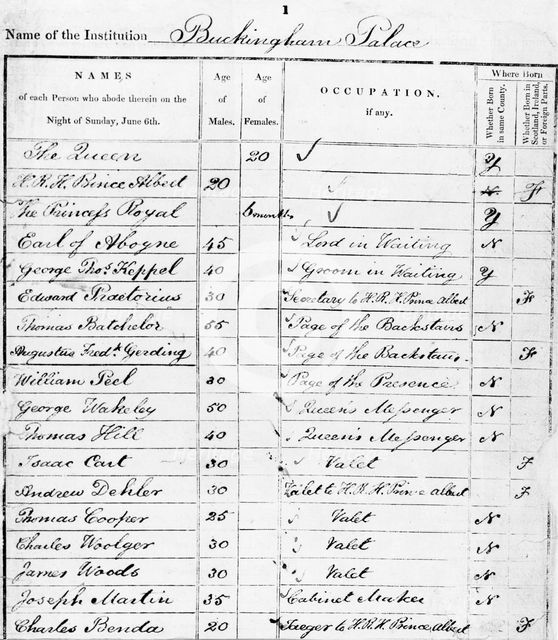 1
Name of the Institution Buckingham Palace
NAMES of each Person who abode therein on the Night of Sunday, June 6th. Age of Males. Age of Females. OCCUPATION, if any. Where Born Whether Born in same County. Whether Born in Scotland, Ireland, or Foreign Parts.
The Queen 20 Y
H.R.H. Prince Albert 20 F
The Princess Royal 6 months Y
Earl of Aboyne 45 Lord in Waiting N
George Thos. Keppel 40 Groom in Waiting Y
Edward Praetorius 30 Secretary to H.R.H. Prince Albert F
Thomas Batchelor 55 Page of the Backstairs N
Augustus Fredk. Gerding 40 Page of the Backstairs F
William Peel 30 Page of the Presence N
George Wakeley 50 Queen's Messenger N
Thomas Hill 40 Queen's Messenger N
Isaac Cart 30 Valet F
Andrew Dehler 30 Valet to H.R.H. Prince Albert F
Thomas Cooper 25 Valet N
Charles Woolger 30 Valet N
James Woods 30 Valet N
Joseph Martin 35 Cabinet Maker N
Charles Benda 20 Jaeger to H.R.H. Prince Albert F